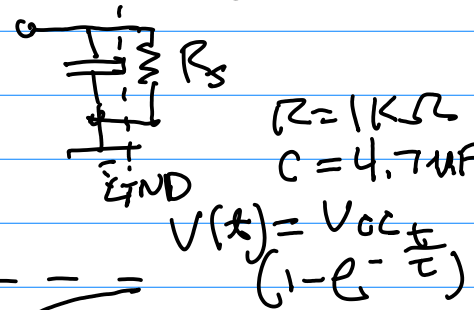 Rs
R=1KΩ
C=4.7uF
GND
V(t)=Voc
(1-e^-t/τ)